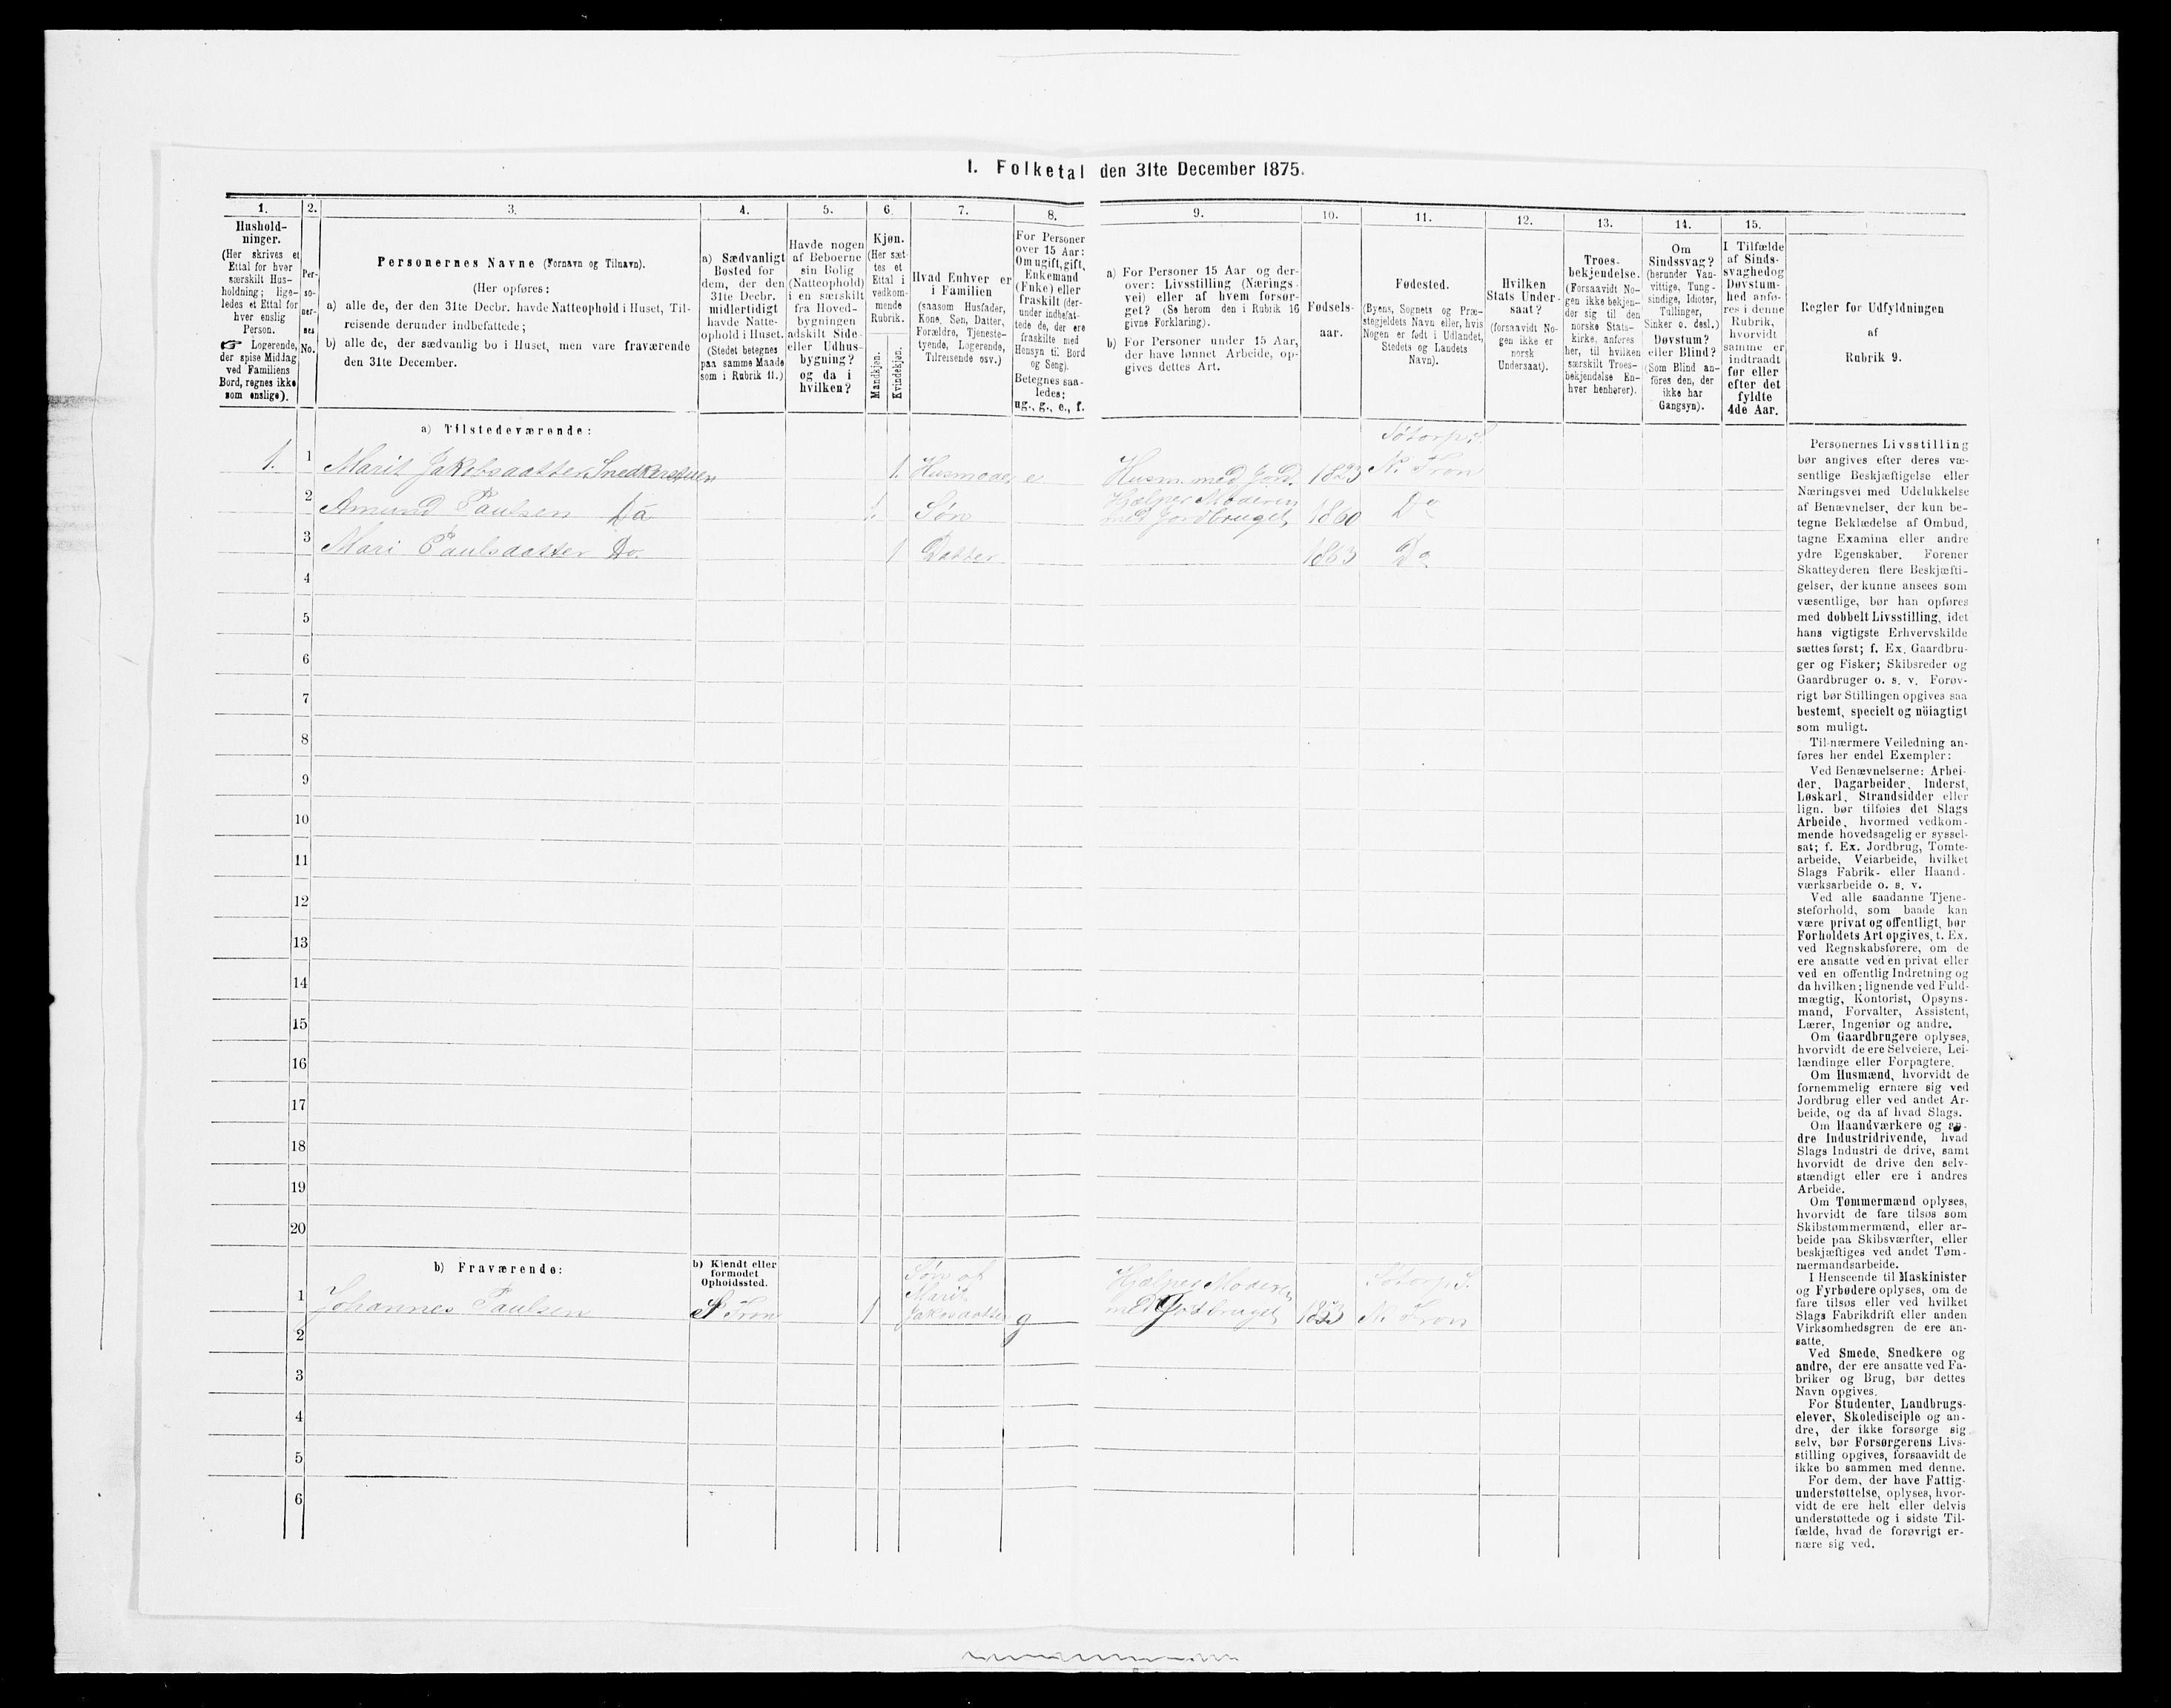 I. Folketal den 31te December 1875.
1.
Hushold-
ninger.
(Her skrives et
Ettal for hver
særskilt Hus-
holdning; lige-
ledes et Ettal for
hver enslig
Person.
☞ Logerende,
der spise Middag
ved Familiens
Bord, regnes ikke
som enslige).
2.
Per-
so-
ner-
nes
No.
3.
Personernes Navne (Fornavn og Tilnavn).
(Her opføres:
a) alle de, der den 31te Decbr. havde Natteophold i Huset, Til-
reisende derunder indbefattede;
b) alle de, der sædvanlig bo i Huset, men vare fraværende
den 31te December.
4.
a) Sædvanligt
Bosted for
dem, der den
31te Decbr.
midlertidigt
havde Natte-
ophold i Huset.
(Stedet betegnes
paa samme Maade
som i Rubrik 11.)
5.
Havde nogen
af Beboerne
sin Bolig
(Natteophold)
i en særskilt
fra Hoved-
bygningen
adskilt Side-
eller Udhus-
bygning?
og da i
hvilken?
6.
Kjøn.
(Her sæt-
tes et
Ettal i
vedkom-
mende
Rubrik.
Mandkjøn.
Kvindekjøn.
7.
Hvad Enhver er
i Familien
(saasom Husfader,
Kone, Søn, Datter,
Forældre, Tjeneste-
tyende, Logerende,
Tilreisende osv.)
8.
For Personer
over 15 Aar:
Om ugift, gift,
Enkemand
(Enke) eller
fraskilt (der-
under indbefat-
tede de, der ere
fraskilte med
Hensyn til Bord
og Seng).
Betegnes saa-
ledes:
ug., g., e., f.
9.
a) For Personer 15 Aar og der-
over: Livsstilling (Nærings-
vei) eller af hvem forsør-
get? (Se herom den i Rubrik 16
givne Forklaring).
b) For Personer under 15 Aar,
der have lønnet Arbeide, op-
gives dettes Art.
10.
Fødsels-
aar.
11.
Fødested.
(Byens, Sognets og Præ-
stegjeldets Navn eller, hvis
Nogen er født i Udlandet,
Stedets og Landets
Navn).
12.
Hvilken
Stats Under-
saat?
(forsaavidt No-
gen ikke er
norsk
Undersaat).
13.
Troes-
bekjendelse.
(Forsaavidt No-
gen ikke bekjen-
der sig til den
norske Stats-
kirke, anføres
her, til hvilken
særskilt Troes-
bekjendelse En-
hver henhører).
14.
Om
Sindssvag?
(herunder Van-
vittige, Tung-
sindige, Idioter,
Tullinger,
Sinker o. desl.)
Døvstum?
eller Blind?
(Som Blind an-
føres den, der
ikke har
Gangsyn).
15.
I Tilfælde
af Sinds-
svaghed og
Døvstum-
hed anfø-
res i denne
Rubrik,
hvorvidt
samme er
indtraadt
før eller
efter det
fyldte
4de Aar.
Regler for Udfyldningen
af
Rubrik 9.
a) Tilstedeværende:
1. 1 Marit Jakobsdatter Snedkerstuen 1. Husmoder e Husm. med Jord. 1823 Sótorp S. N. Fron
2 Amund Paulsen Do 1. Søn Hjælper Moderen med Jordbruget 1860 Do
3 Mari Paulsdatter Do. 1 Datter 1863 Do
4
5
6
7
8
9
10
11
12
13
14
15
16
17
18
19
20
b) Fraværende:
b) Kjendt eller
formodet
Opholdssted.
1 Johannes Paulsen S Fron 1 Søn af Marit g Hjælper Moderen med Jordbruget 1853 Sótorp S. N. Fron
2
3
4
5
6
Personernes Livsstilling
bør angives efter deres væ-
sentlige Beskjæftigelse eller
Næringsvei med Udelukkelse
af Benævnelser, der kun be-
tegne Beklædelse af Ombud,
tagne Examina eller andre
ydre Egenskaber. Forener
Skatteyderen flere Beskjæfti-
gelser, der kunne ansees som
væsentlige, bør han opføres
med dobbelt Livsstilling, idet
hans vigtigste Erhvervskilde
sættes først; f. Ex. Gaardbru-
ger og Fisker; Skibsreder og
Gaardbruger o. s. v. Forøv-
rigt bør Stillingen opgives saa
bestemt, specielt og nöiagtigt
som muligt.
Til nærmere Veiledning an-
føres her endel Exempler:
Ved Benævnelserne: Arbei-
der, Dagarbeider, Inderst,
Løskarl, Strandsidder eller
lign. bør tilføies det Slags
Arbeide, hvormed vedkom-
mende hovedsagelig er syssel-
sat; f. Ex. Jordbrug, Tomte-
arbeide, Veiarbeide, hvilket
Slags Fabrik- eller Haand-
værksarbeide o. s. v.
Ved alle saadanne Tjene-
steforhold, som baade kan
være privat og offentligt, bør
Forholdets Art opgives, t. Ex.
ved Regnskabsførere, om de
ere ansatte ved en privat eller
ved en offentlig Indretning og
da hvilken; lignende ved Fuld-
mægtig, Kontorist, Opsyns-
mand, Forvalter, Assistent,
Lærer, Ingeniør og andre.
Om Gaardbrugere oplyses,
hvorvidt de ere Selveiere, Lei-
lændinge eller Forpagtere.
Om Husmænd, hvorvidt de
fornemmelig ernære sig ved
Jordbrug eller ved andet Ar-
beide, og da af hvad Slags.
Om Haandværkere og an-
dre Industridrivende, hvad
Slags Industri de drive, samt
hvorvidt de drive den selv-
stændigt eller ere i andres
Arbeide.
Om Tømmermænd oplyses,
hvorvidt de fare tilsøs som
Skibstømmermænd, eller ar-
beide paa Skibsværfter, eller
beskjæftiges ved andet Tøm-
mermandsarbeide.
I Henseende til Maskinister
og Fyrbødere oplyses, om de
fare tilsøs eller ved hvilket
Slags Fabrikdrift eller anden
Virksomhedsgren de ere an-
satte.
Ved Smede, Snedkere og
andre, der ere ansatte ved Fa-
briker og Brug, bør dettes
Navn opgives.
For Studenter, Landbrugs-
elever, Skoledisciple og an-
dre, der ikke forsørge sig
selv, bør Forsørgerens Livs-
stilling opgives, forsaavidt de
ikke bo sammen med denne.
For dem, der have Fattig-
understøttelse, oplyses, hvor-
vidt de ere helt eller delvis
understøttede og i sidste Til-
fælde, hvad de forøvrigt er-
nære sig ved.